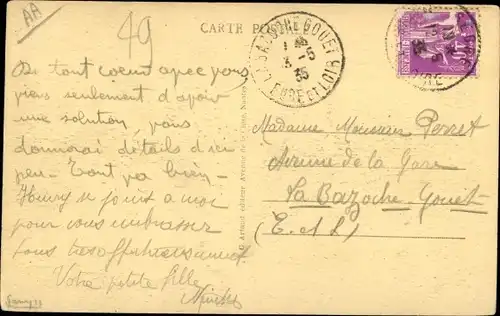 AA
49
CARTE POSTALE
LA BAZOCHE GOUET
3-5
35
EURE ET LOIR
De tout coeur avec vous
viens seulement d'avoir
une solution, vous
donnerai détails d'ici
peu - Tout va bien -
Henry se joint à moi
pour vous embrasser
tous tres affectueusement
Votre petite fille
Madame Monsieur Perret
Avenue de la Gare
La Bazoche-Gouet
(E. et L.)